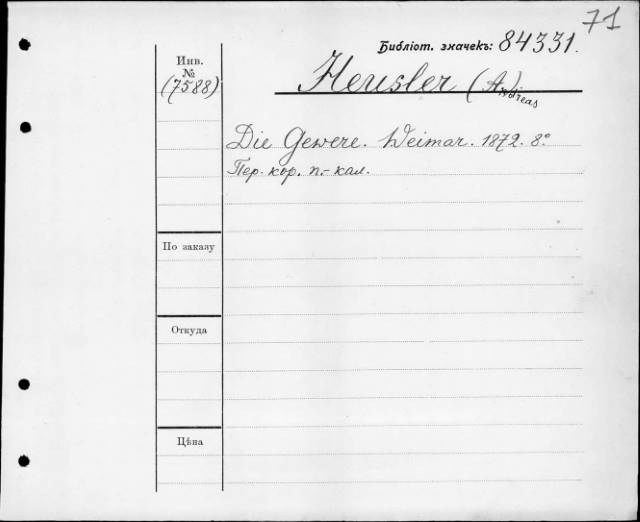 71
Библіот. значекъ: 84331.
Инв.
№
(7588)
Heusler (Andreas)
Die Gewere. Weimar. 1872. 8°
Пер. кор. п.-кал.
По заказу
Откуда
Цѣна